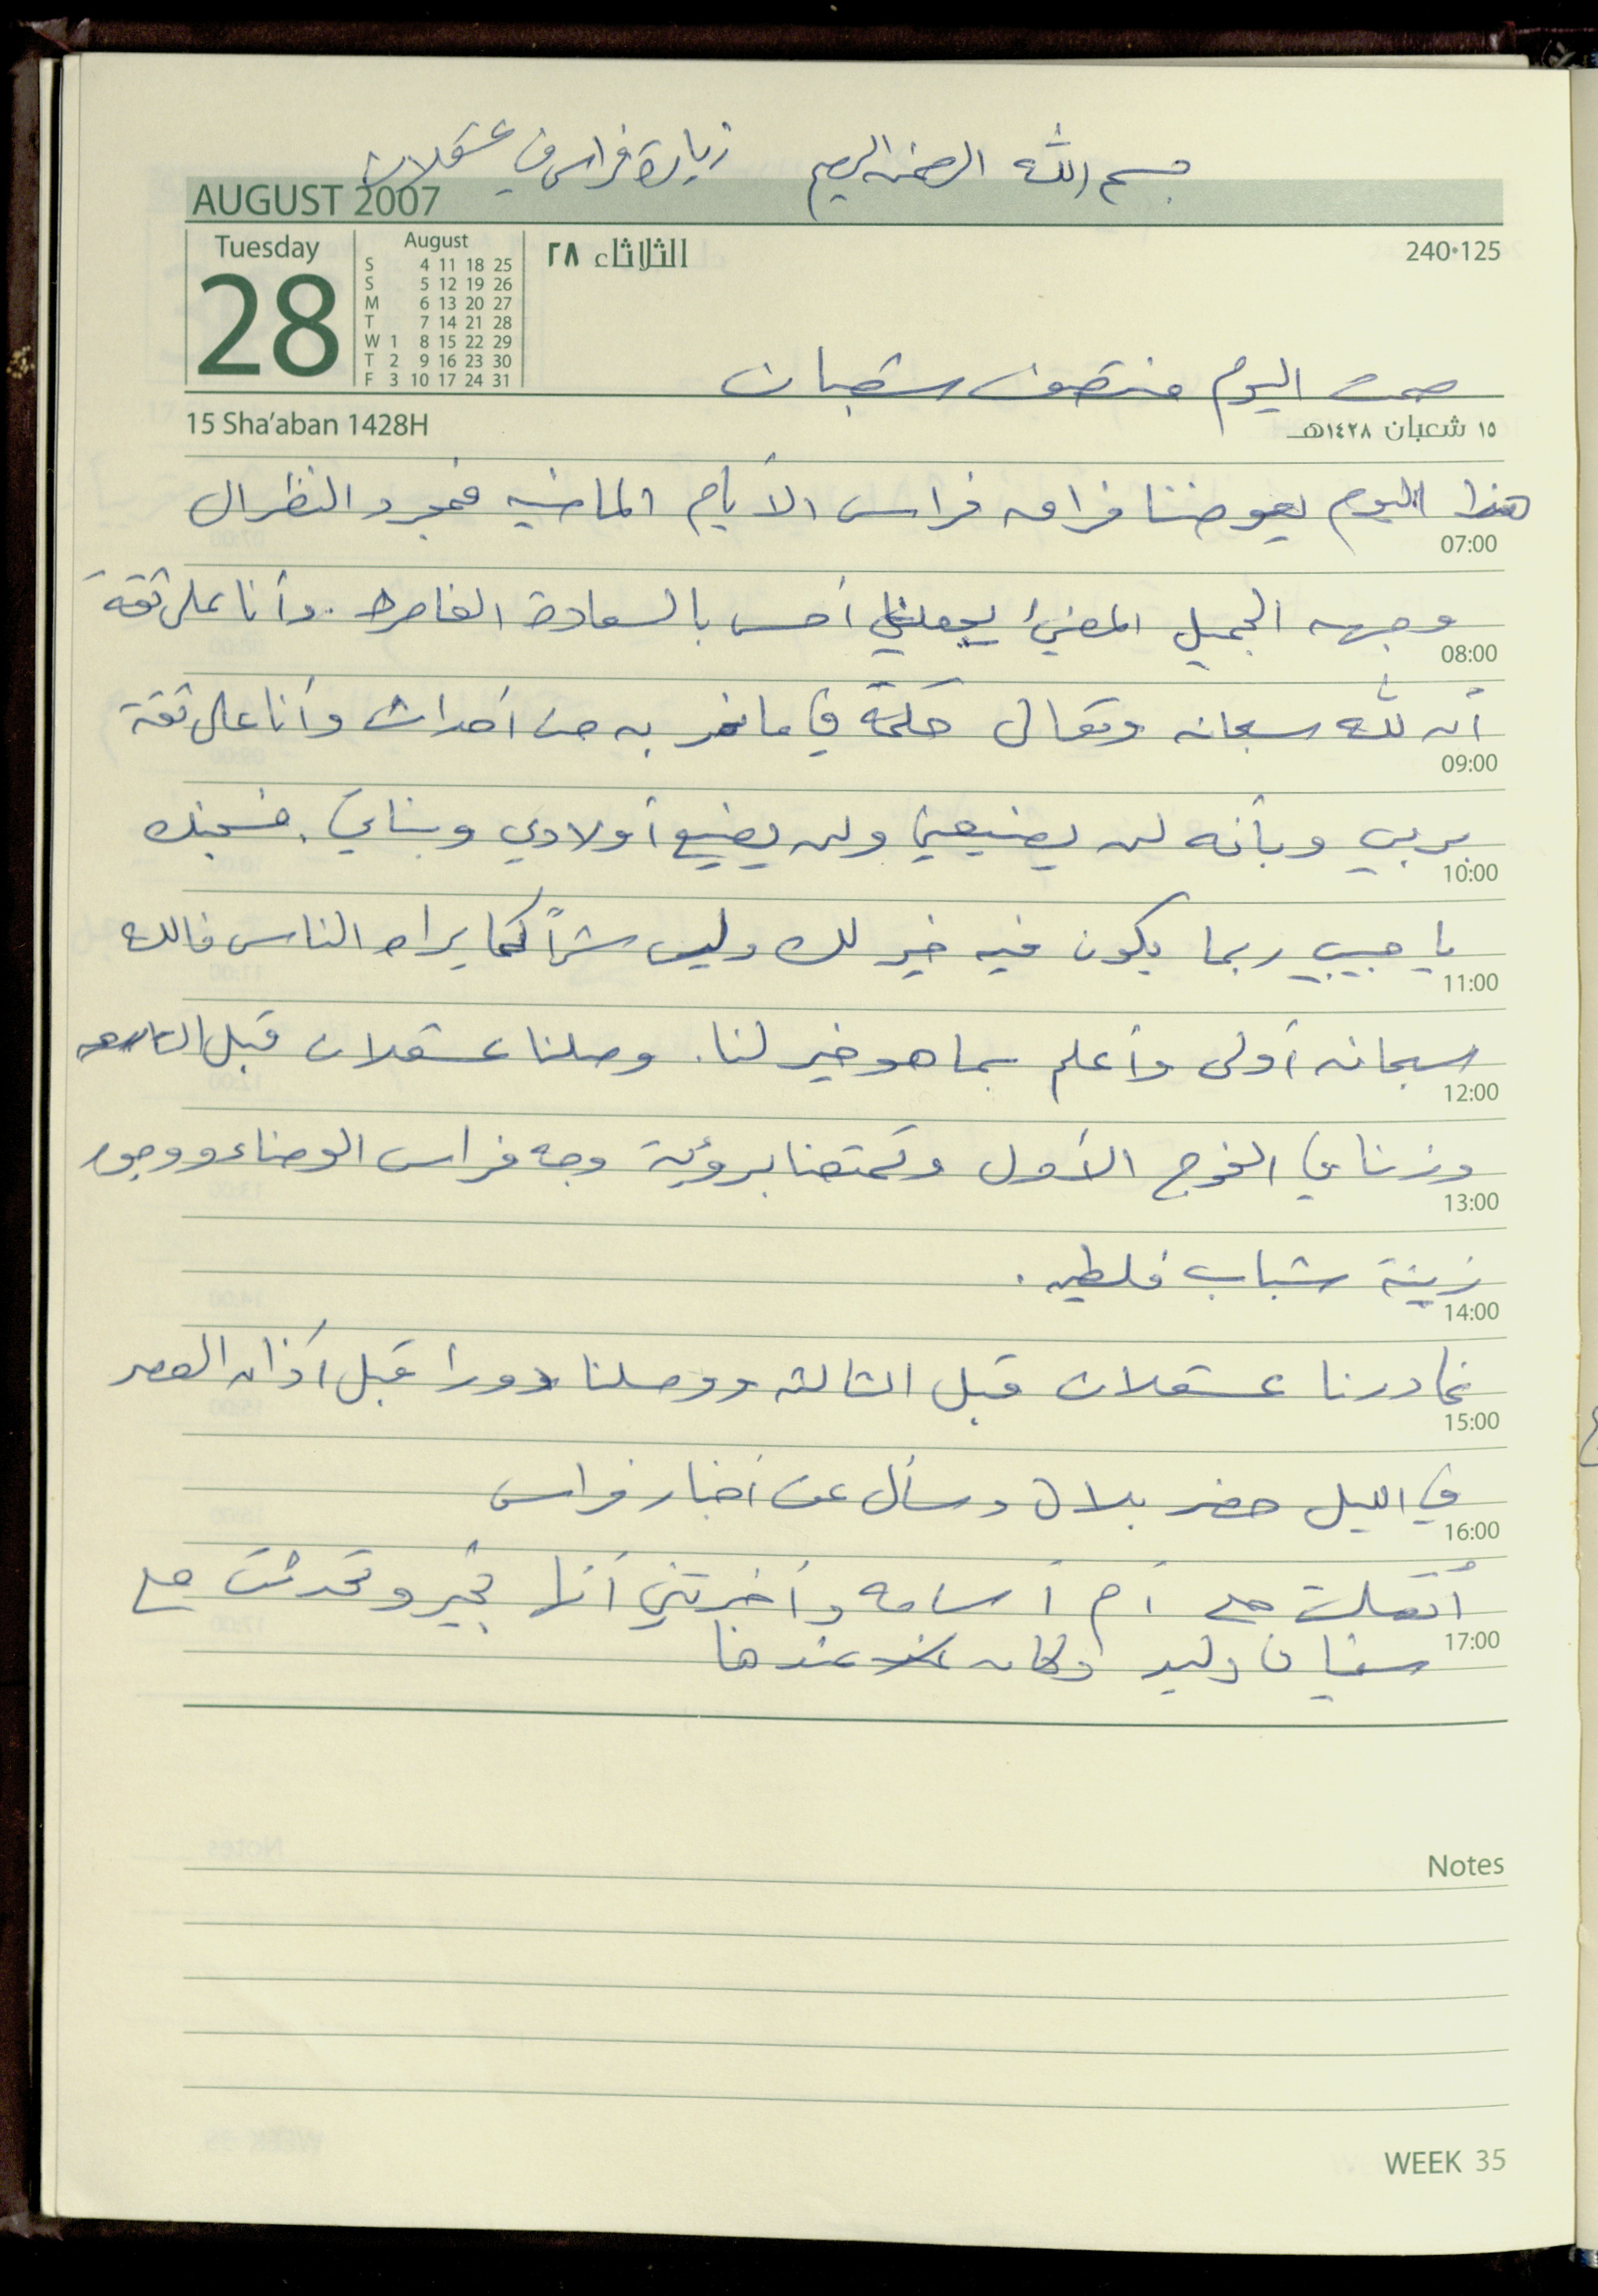 بسم الله الرحمن الرحيم زيارة فراس في عسقلان
AUGUST 2007
Tuesday
28
August
S 4 11 18 25
S 5 12 19 26
M 6 13 20 27
T 7 14 21 28
W 1 8 15 22 29
T 2 9 16 23 30
F 3 10 17 24 31
الثلاثاء ٢٨
240•125
صمت اليوم منتصف شعبان
15 Sha'aban 1428H
١٥ شعبان ١٤٢٨هـ
هذا اليوم يعوضنا فراق فراس الأيام الماضيه فمجرد النظر ال
07:00
وجهه الجميل المضيئ يجعلني أحس بالسعادة الغامرة. وأنا على ثقة
08:00
أن لله سبحانه وتعالى حكمة في ما نمر به من أحداث وأنا على ثقة
09:00
بربي وبأنه لن يضيعني ولن يضيع أولادي وبناتي. فسجنك
10:00
يا حبيبي ربما يكون فيه خير لك وليس شراً كما يراه الناس فالله
11:00
سبحانه أولى وأعلم بما هو خير لنا. وصلنا عسقلان قبل
12:00
وزرنا في الفوج الأول وتمتعنا برؤية وجه فراس الوضاء ووجوه
13:00
زينة شباب فلسطين.
14:00
غادرنا عسقلان قبل الثالثة ووصلنا دورا قبل أذان العصر
15:00
في الليل حضر بلال وسأل عن أخبار فراس
16:00
أتصلت مع أم أسامه وأخبرتني أنها بخير وتحدثت مع
17:00
سفيان وليد وكان عندها
Notes
WEEK 35